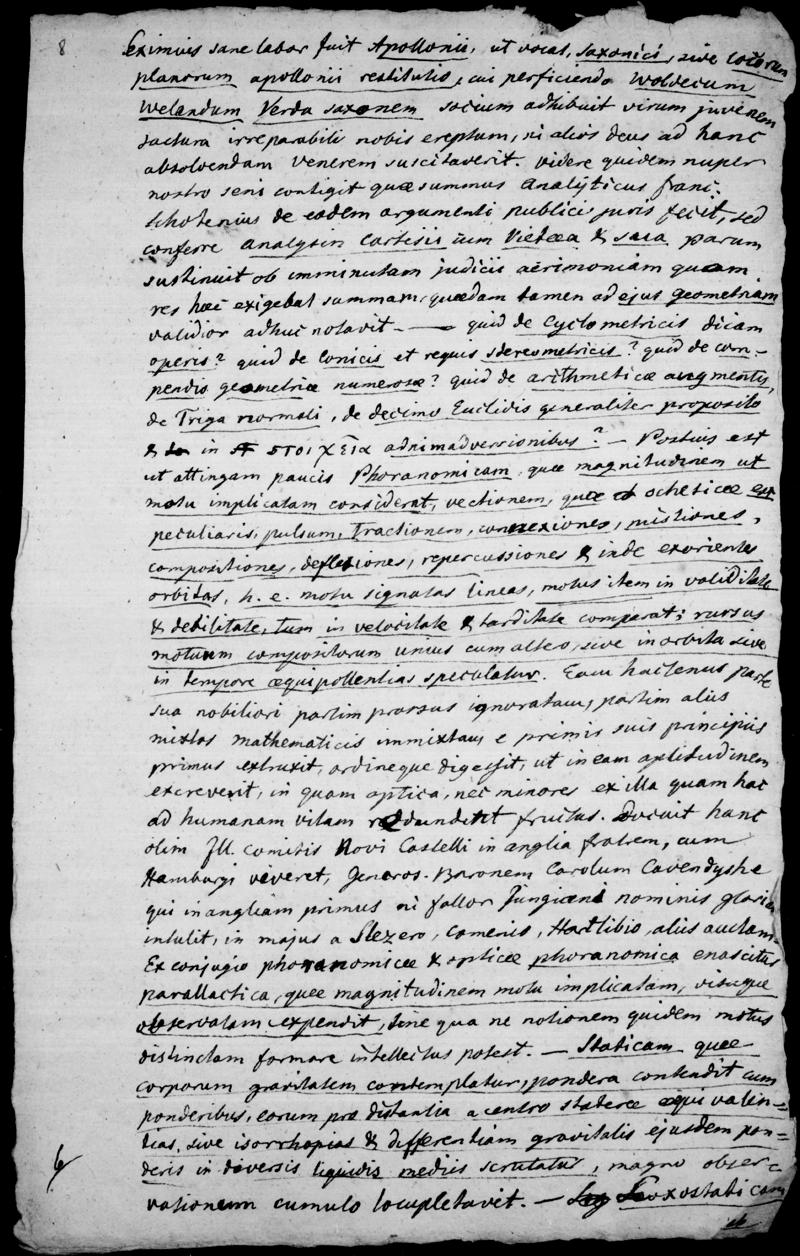 8
Eximius sane labor fuit Apollonii, ut vocat, saxonici, sive locorum
planorum apollonii restitutio, cui perficiendo Woldecum
Welandum Verda saxonem socium adhibuit virum juvenem
jactura irreparabili nobis ereptum, ni alios deus ad hanc
absolvendam Venerem suscitaverit. videre quidem nuper
nostro seni contigit quæ summus Analyticus franc.
Schotenius de eadem argumenti publici juris fecit, sed
conferre analysin Cartesii cum Vietæa & sua parum
sustinuit ob imminutam judicii acrimoniam quam
res hæc exigebat summam, quædam tamen ad ejus geometriam
validior adhuc notavit. — quid de Cyclometricis dicam
operis? quid de Conicis et reguis stereometricis? quid de com-
pendio geometriæ numerosæ? quid de arithmeticæ augmentis,
de Triga normali, de decimo Euclidis generaliter proposito
& in στοιχεῖα adnimadversionibus? — Potius est
ut attingam paucis Phoranomicam, quæ magnitudinem ut
motu implicatam considerat, vectionem, quæ ocheticæ est
peculiaris, pulsum, tractionem, connexiones, mistiones,
compositiones, deflexiones, repercussiones & inde exorientes
orbitas, h. e. motu signatas lineas, motus item in validitate
& debilitate, tum in velocitate & tarditate comparat; rursus
motuum compositorum unius cum altero, sive in orbita sive
in tempore æquipollentias speculatur. Eam hactenus parte
sua nobiliori partim prorsus ignoratam, partim aliis
mixtos mathematicis immixtam, e primis suis principiis
primus extruxit, ordineque digessit, ut in eam aptitudinem
excreverit, in quam optica, nec minores ex illa quam hac
ad humanam vitam redundent fructus. Docuit hanc
olim Ill. comitis Novi Castelli in anglia fratrem, cum
Hamburgi viveret, Generos. Baronem Carolum Cavendyshe
qui in angliam primus ni fallor Jungiani nominis gloriam
intulit, in majus a Slezero, Comenio, Hartlibio, aliis auctam.
Ex conjugio phoranomicæ & opticæ phoranomica enascitur
parallactica, quæ magnitudinem motu implicatam, visuque
observatam expendit, sine qua ne notionem quidem motus
distinctam formare intellectus potest. — Staticam quæ
corporum gravitatem contemplatur, pondera contendit cum
ponderibus, eorum pro distantia a centro stateræ æquivalen-
tias, sive isorrhopias & differentiam gravitatis ejusdem pon-
deris in diversis liquidis mediis scrutatur, magno obser-
vationum cumulo locupletavit. — Loxostaticam